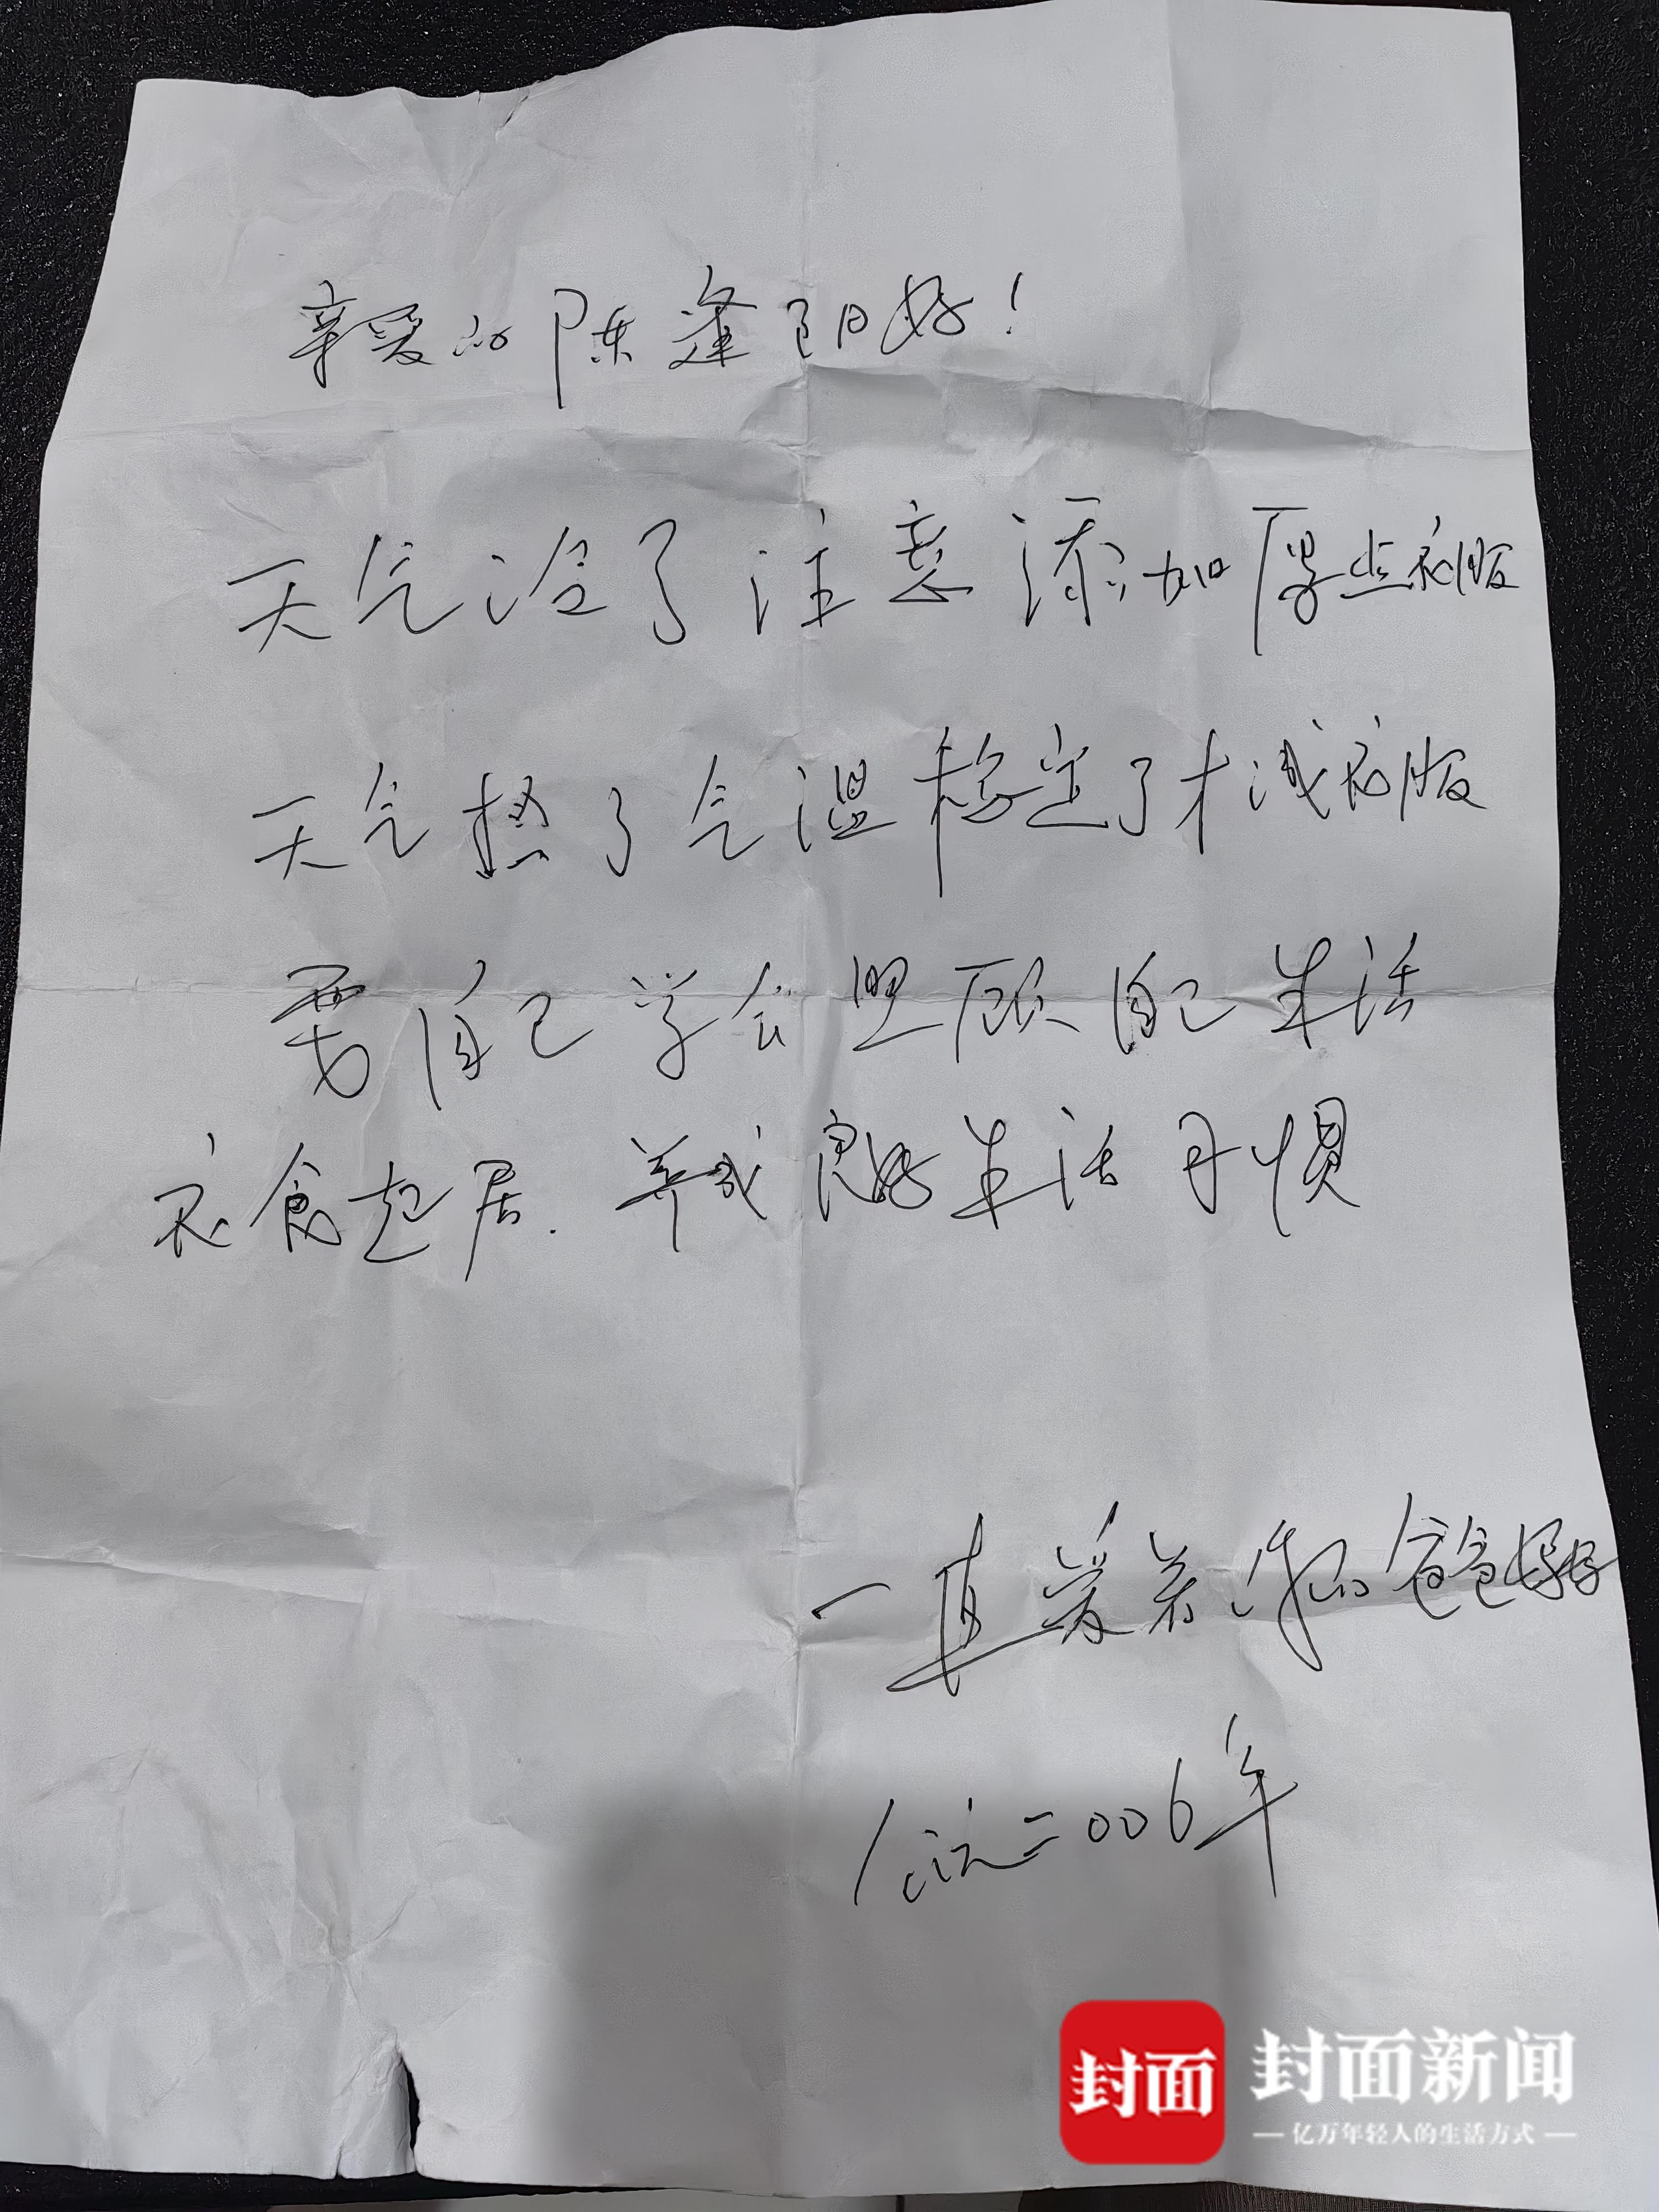 亲爱的陈逢朝好！
天气冷了注意添加厚点衣服
天气热了气温稳定了才减衣服
要自己学会照顾自己生活
衣食起居.养成良好生活习惯
一直爱着你的爸爸妈妈
公元二006年
封面
封面新闻
亿万年轻人的生活方式